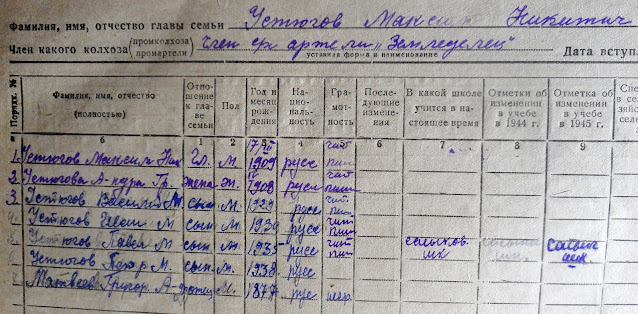 Фамилия, имя, отчество главы семьи Устюгов Максим Никитич
Член какого колхоза (промколхоза промартели) член с/х артели „Земледелец"
уставная форма и наименование
Дата вступ.
Порядк. № Фамилия, имя, отчество (полностью) Отношение к главе семьи Пол Год и месяц рождения Национальность Грамотность Последующие изменения В какой школе учится в настоящее время Отметки об изменении в учебе в 1944 г. Отметка об изменении в учебе в 1945 г.
1 2 3 4 5 6 7 8 9
1. Устюгов Максим Ник гл. м. 1909 русс чит пит
2. Устюгова А-ндра Гр. жена ж. 1908 русс чит пит
3. Устюгов Василий М сын м. 1929 русс чит пит
Устюгов Иван М сын м. 1930 русс чит пит
Устюгов Павел М сын м. 1935 русс чит пит
Устюгов М. сын. м. 1938 рус
7. Матвеев Григор. А- м. 1877 рус